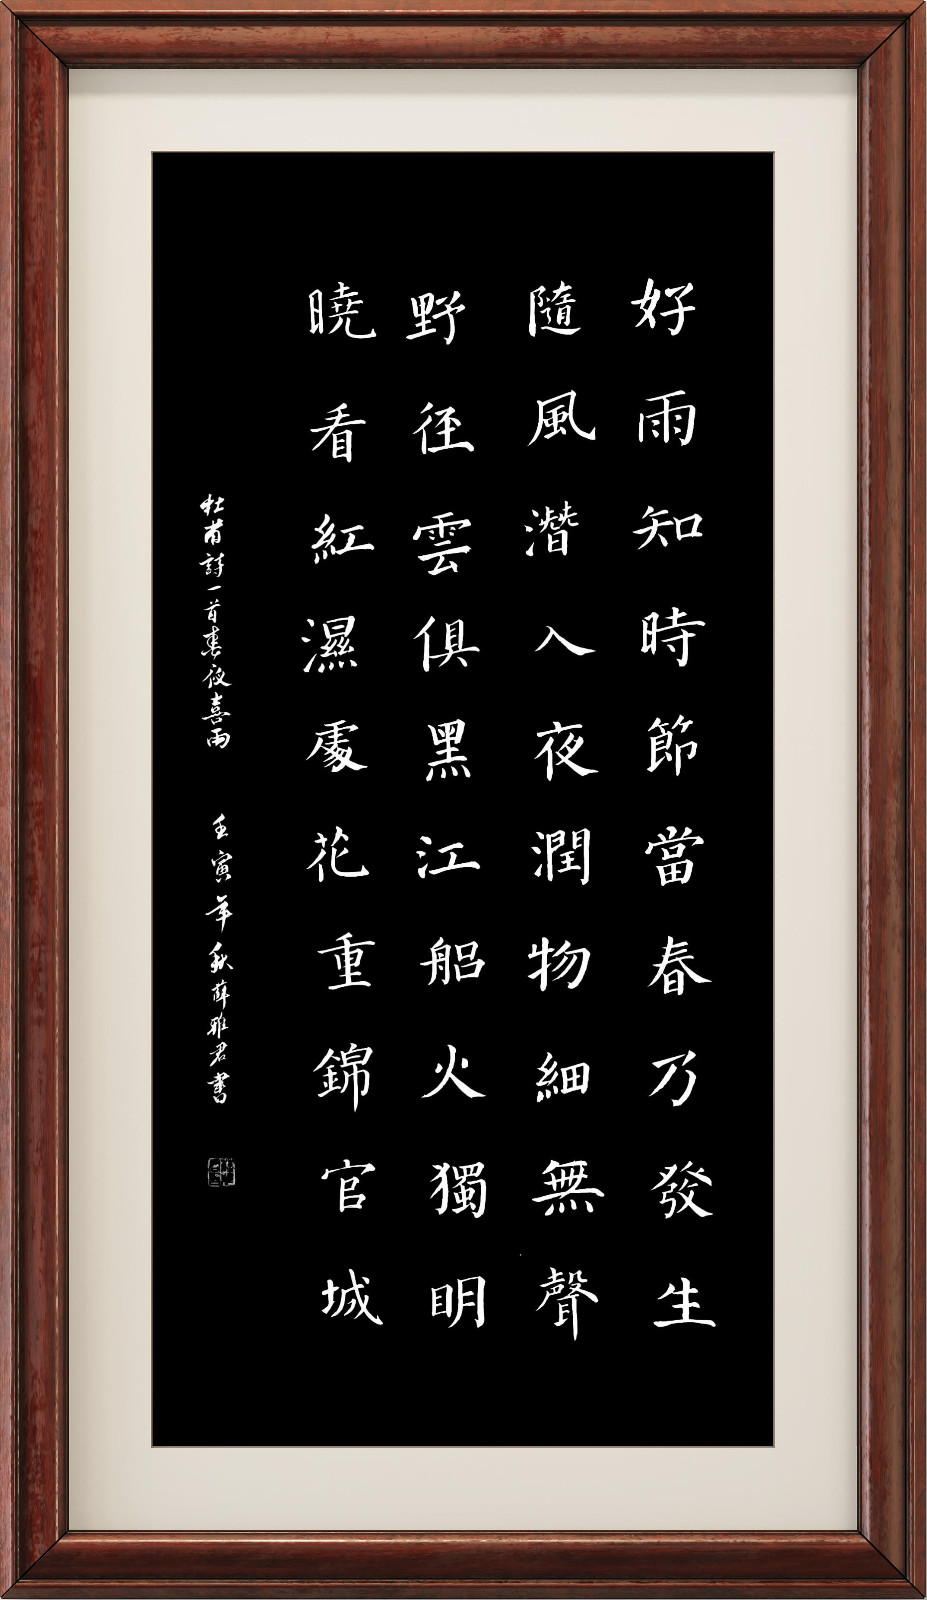 好雨知時節當春乃發生
隨風潛入夜潤物細無聲
野徑雲俱黑江船火獨明
曉看紅濕處花重錦官城
杜甫詩一首春夜喜雨 壬寅年秋薛雅君書